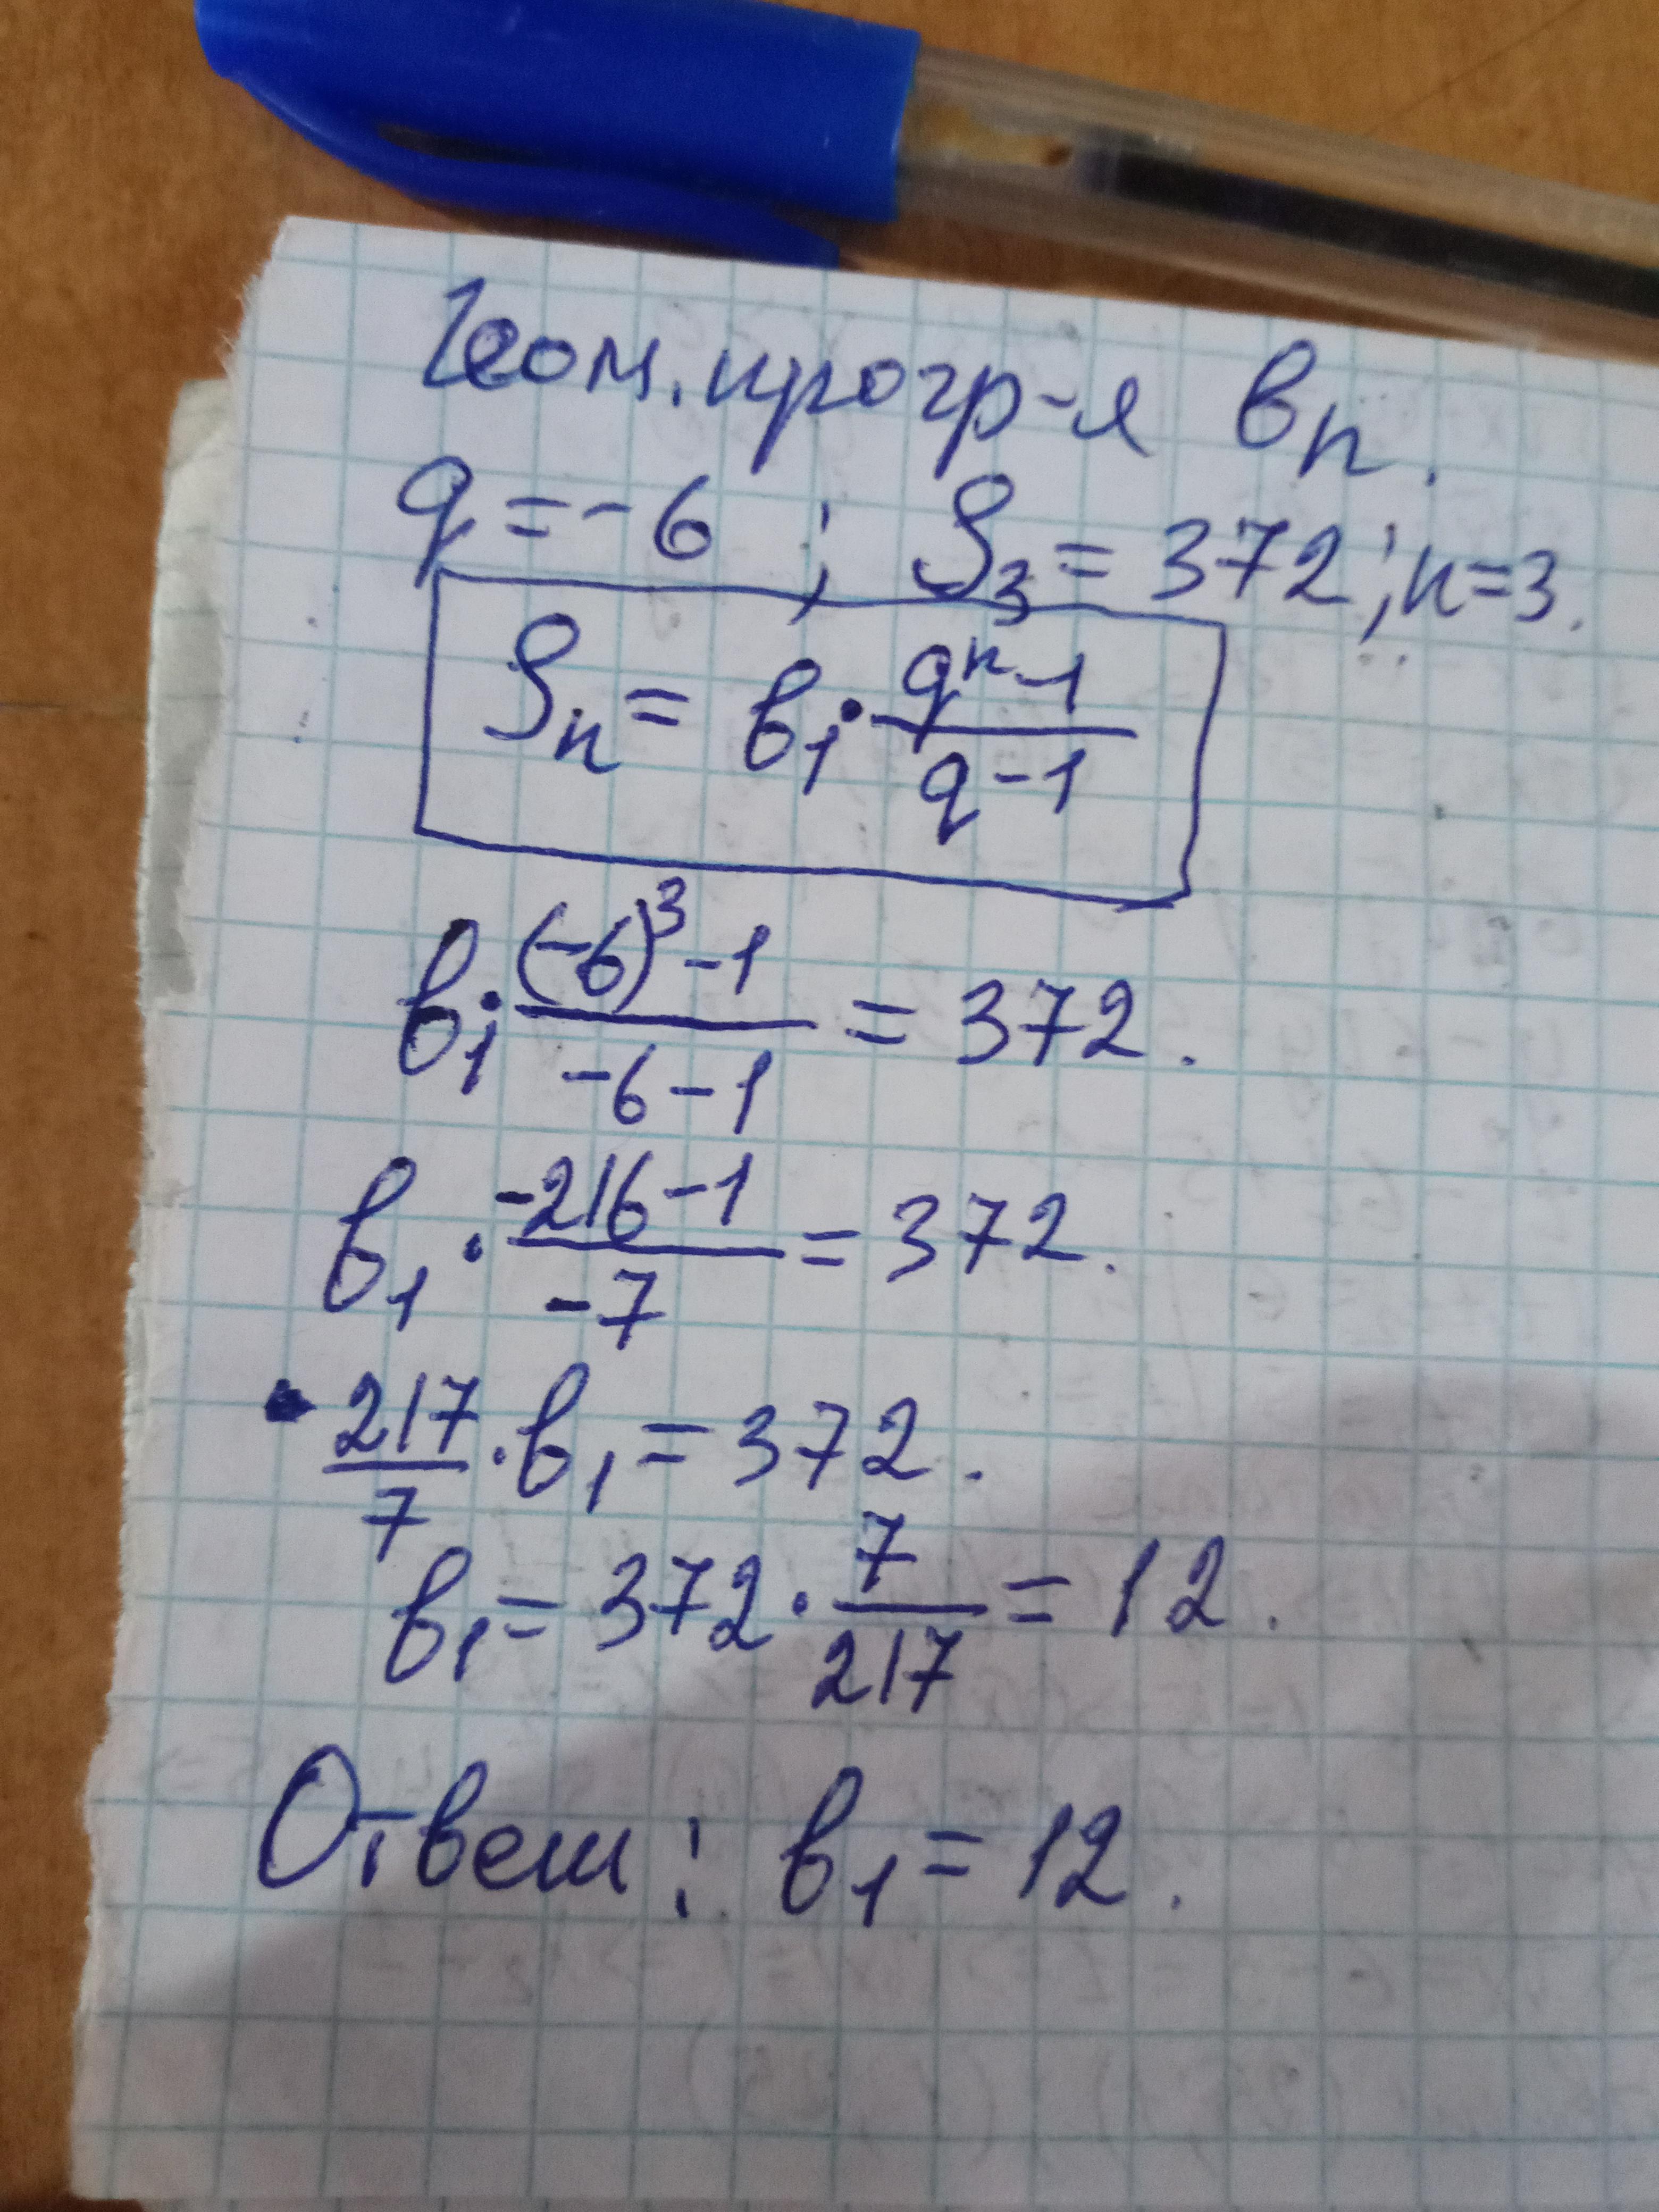 Геом. прогр-я bₙ.
q = -6 ; S₃ = 372 ; n = 3.
Sₙ = b₁ · (qⁿ - 1)/(q - 1)
b₁ · ((-6)³ - 1)/(-6 - 1) = 372.
b₁ · (-216 - 1)/(-7) = 372.
217/7 · b₁ = 372.
b₁ = 372 · 7/217 = 12.
Ответ: b₁ = 12.